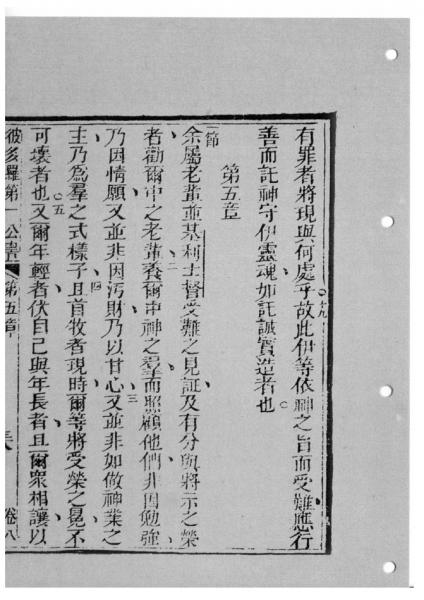 有罪者將現與何處乎○十九故此伊等依神之旨而受難應行
善而託神守伊靈魂如託誠實造者也○
第五章
一節余屬老輩並基利士督受難之見証及有分與將示之榮
者勸爾中之老輩二養爾中神之羣而照顧他們非因勉強
乃因情願又並非因污財乃以甘心三又並非如做神業之
主乃為羣之式樣子四且首牧者現時爾等將受榮之冕不
可壞者也○五又爾年輕者伏自己與年長者且爾眾相讓以
彼多羅第一公書 第五章 卷八